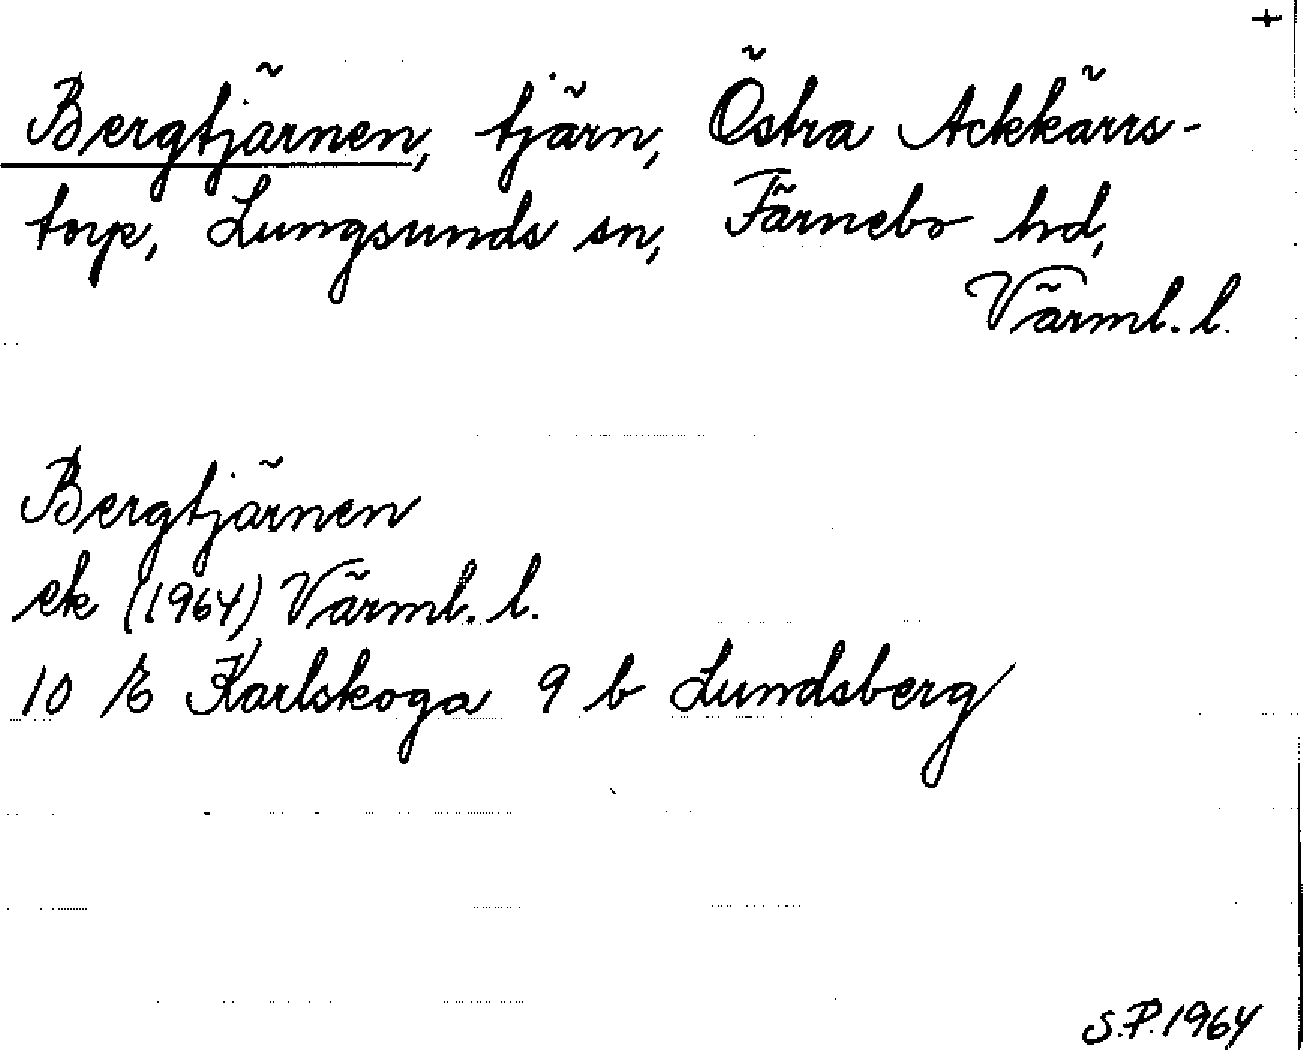 +
Bergtjärnen, tjärn, Östra Ackkärrs-
torp, Lungsunds sn, Färnebo hd,
Värml. l.
Bergtjärnen
ek (1964) Värml. l.
10 E Karlskoga 9 b Lundsberg
S.P. 1964